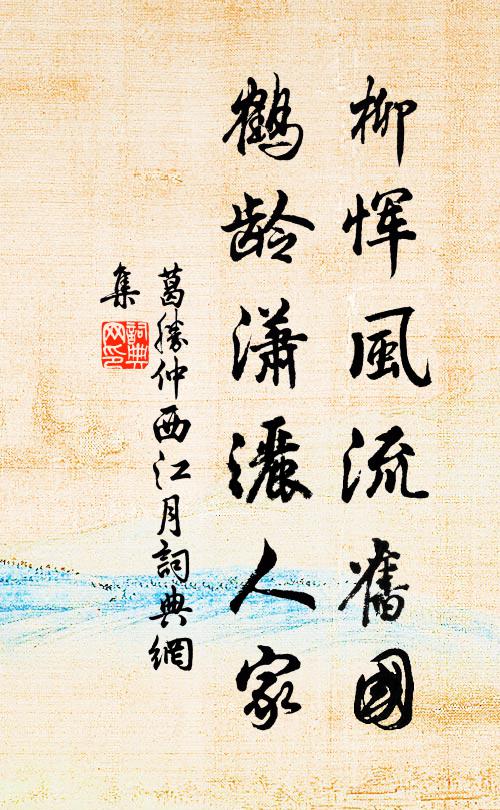 柳恽風流舊國
鶴龄潇灑人家
葛勝仲西江月詞典網
集
詞典網印